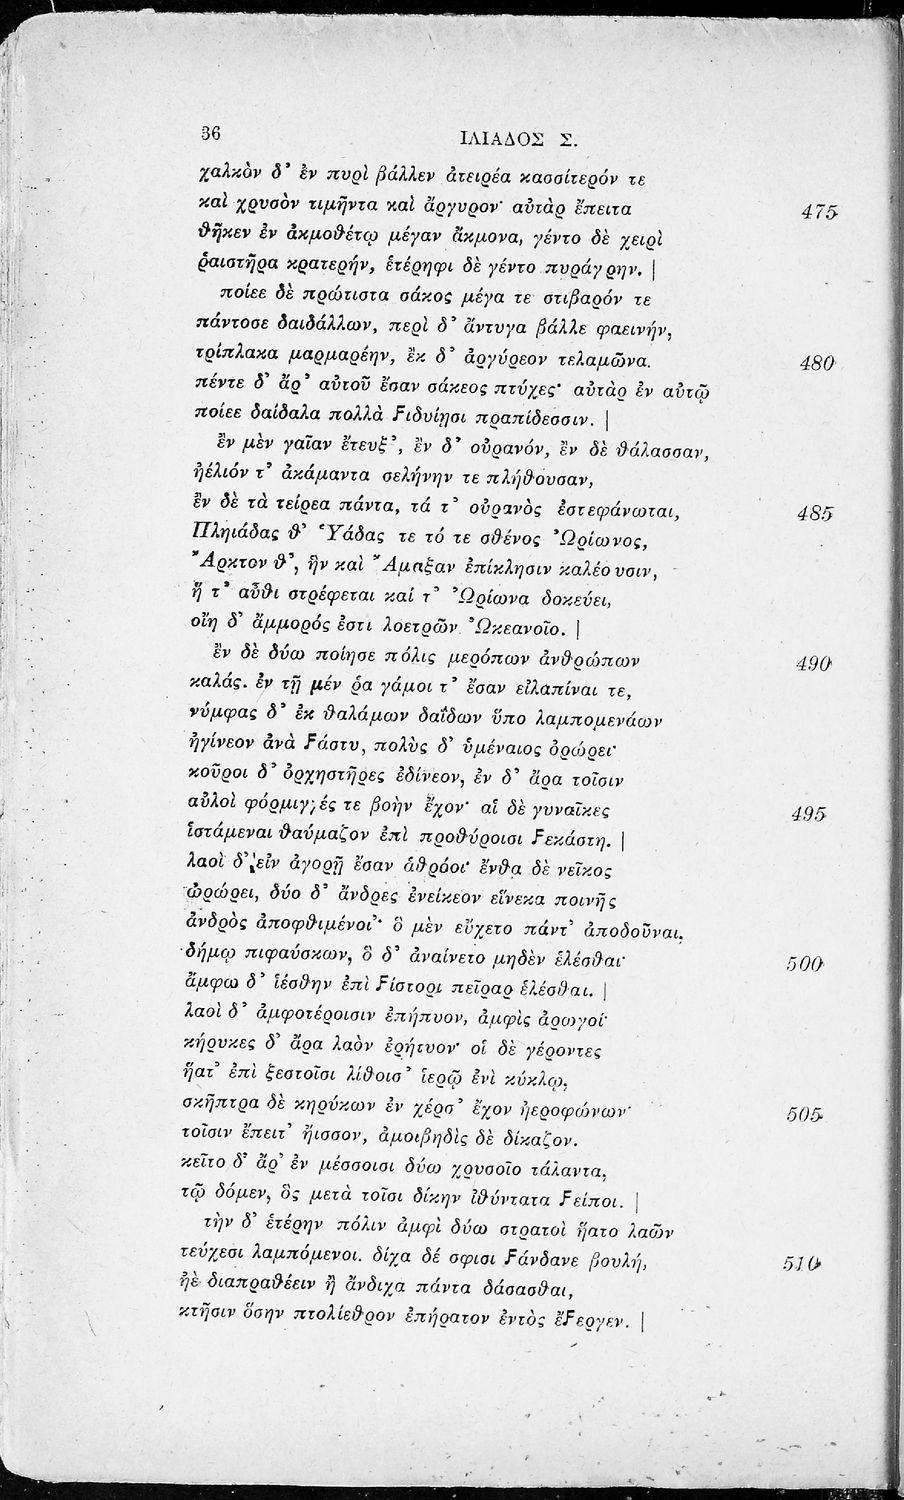 36
ΙΛΙΑΔΟΣ Σ.
χαλκὸν δ’ ἐν πυρὶ βάλλεν ἀτειρέα κασσίτερόν τε
καὶ χρυσὸν τιμῆντα καὶ ἄργυρον· αὐτὰρ ἔπειτα 475
θῆκεν ἐν ἀκμοθέτῳ μέγαν ἄκμονα, γέντο δὲ χειρὶ
ῥαιστῆρα κρατερήν, ἑτέρηφι δὲ γέντο πυράγρην. |
ποίεε δὲ πρώτιστα σάκος μέγα τε στιβαρόν τε
πάντοσε δαιδάλλων, περὶ δ’ ἄντυγα βάλλε φαεινήν,
τρίπλακα μαρμαρέην, ἐκ δ’ ἀργύρεον τελαμῶνα. 480
πέντε δ’ ἄρ’ αὐτοῦ ἔσαν σάκεος πτύχες· αὐτὰρ ἐν αὐτῷ
ποίεε δαίδαλα πολλὰ ϝιδυίῃσι πραπίδεσσιν. |
ἐν μὲν γαῖαν ἔτευξ’, ἐν δ’ οὐρανόν, ἐν δὲ θάλασσαν,
ἠέλιόν τ’ ἀκάμαντα σελήνην τε πλήθουσαν,
ἐν δὲ τὰ τείρεα πάντα, τά τ’ οὐρανὸς ἐστεφάνωται, 485
Πληιάδας θ’ Ὑάδας τε τό τε σθένος Ὠρίωνος,
Ἄρκτον θ’, ἣν καὶ Ἄμαξαν ἐπίκλησιν καλέουσιν,
ἥ τ’ αὖθι στρέφεται καί τ’ Ὠρίωνα δοκεύει,
οἴη δ’ ἄμμορός ἐστι λοετρῶν Ὠκεανοῖο. |
ἐν δὲ δύω ποίησε πόλις μερόπων ἀνθρώπων 490
καλάς. ἐν τῇ μέν ῥα γάμοι τ’ ἔσαν εἰλαπίναι τε,
νύμφας δ’ ἐκ θαλάμων δαΐδων ὕπο λαμπομενάων
ἠγίνεον ἀνὰ ϝάστυ, πολὺς δ’ ὑμέναιος ὀρώρει·
κοῦροι δ’ ὀρχηστῆρες ἐδίνεον, ἐν δ’ ἄρα τοῖσιν
αὐλοὶ φόρμιγγές τε βοὴν ἔχον· αἱ δὲ γυναῖκες 495
ἱστάμεναι θαύμαζον ἐπὶ προθύροισι ϝεκάστη. |
λαοὶ δ’ εἰν ἀγορῇ ἔσαν ἀθρόοι· ἔνθα δὲ νεῖκος
ὠρώρει, δύο δ’ ἄνδρες ἐνείκεον εἵνεκα ποινῆς
ἀνδρὸς ἀποφθιμένοι’· ὃ μὲν εὔχετο πάντ’ ἀποδοῦναι,
δήμῳ πιφαύσκων, ὃ δ’ ἀναίνετο μηδὲν ἑλέσθαι· 500
ἄμφω δ’ ἱέσθην ἐπὶ ϝίστορι πεῖραρ ἑλέσθαι. |
λαοὶ δ’ ἀμφοτέροισιν ἐπήπυον, ἀμφὶς ἀρωγοί·
κήρυκες δ’ ἄρα λαὸν ἐρήτυον· οἱ δὲ γέροντες
ἥατ’ ἐπὶ ξεστοῖσι λίθοισ’ ἱερῷ ἐνὶ κύκλῳ,
σκῆπτρα δὲ κηρύκων ἐν χέρσ’ ἔχον ἠεροφώνων· 505
τοῖσιν ἔπειτ’ ἤισσον, ἀμοιβηδὶς δὲ δίκαζον.
κεῖτο δ’ ἄρ’ ἐν μέσσοισι δύω χρυσοῖο τάλαντα,
τῷ δόμεν, ὃς μετὰ τοῖσι δίκην ἰθύντατα ϝείποι. |
τὴν δ’ ἑτέρην πόλιν ἀμφὶ δύω στρατοὶ ἥατο λαῶν
τεύχεσι λαμπόμενοι. δίχα δέ σφισι ϝάνδανε βουλή, 510
ἠὲ διαπραθέειν ἢ ἄνδιχα πάντα δάσασθαι,
κτῆσιν ὅσην πτολίεθρον ἐπήρατον ἐντὸς ἔϝεργεν. |